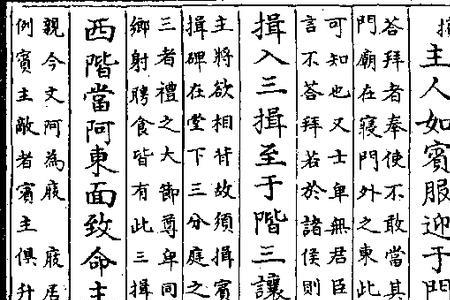 揖
主人如賓服迎于門
答拜者奉使不敢當其
門廟在寢門外之東此
可知也又士卑無君臣
言不答拜若於諸侯則
揖入三揖至于階三讓
主將欲相背故須揖賓
揖碑在堂下三分庭之
三者禮之大節尊卑同
鄉射聘食皆有此三揖
西階當阿東面致命主
親今文阿為庪 庪居
例賓主敵者賓主俱升